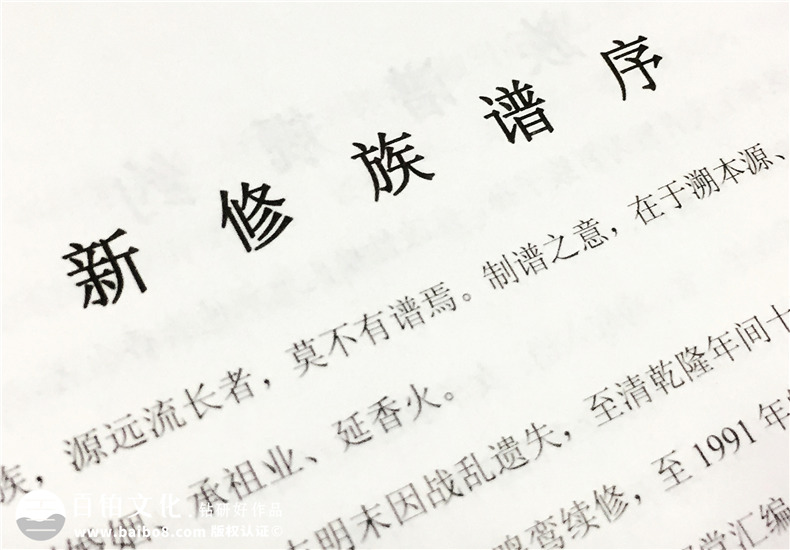 新修族谱序
族，源远流长者，莫不有谱焉。制谱之意，在于溯本源、
承祖业、延香火。
在明末因战乱遗失，至清乾隆年间十
鸾续修，至1991年
堂汇编
百铂文化 钻研好作品
www.balbo8.com 版权认证©